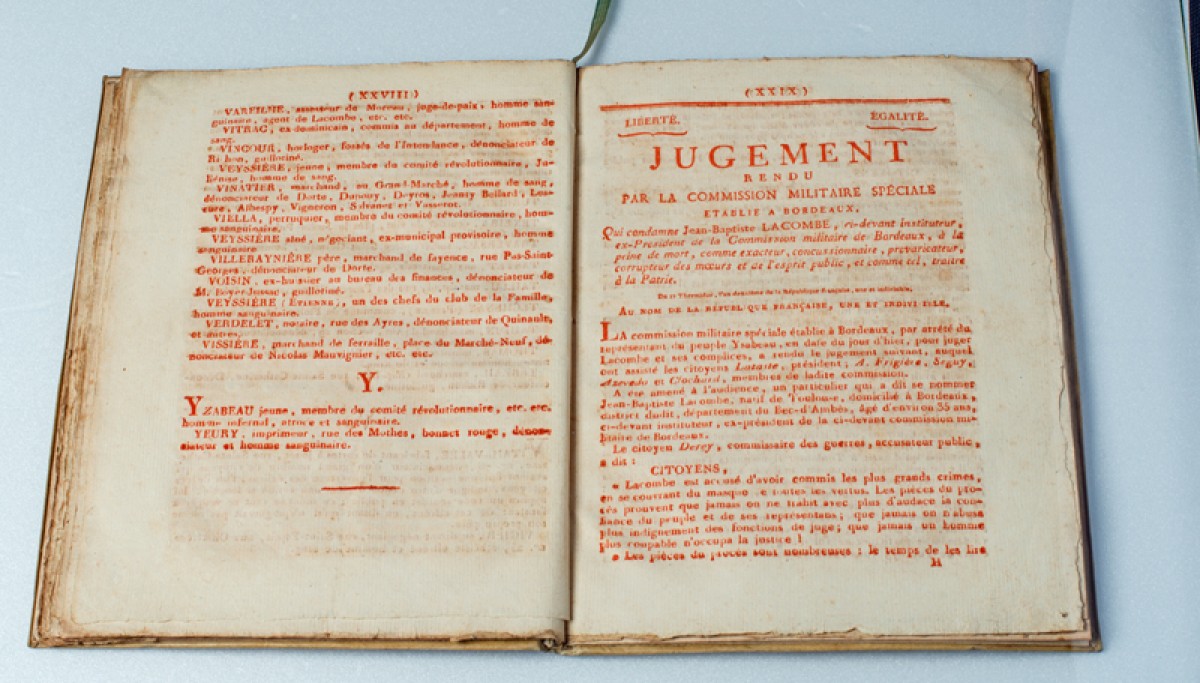 ( XXVIII )
VAREILHE, assesseur de Mureau, juge-de-paix, homme san-
guinaire, agent de Lacombe, etc. etc.
VITRAC, ex-dominicain, commis au département, homme de
sang.
VINCOUR, horloger, fossés de l'Intendance, dénonciateur de
guillotiné.
VEYSSIÈRE, jeune, membre du comité révolutionnaire,
homme de sang.
VINATIER, marchand, au Grand-Marché, homme de sang,
dénonciateur de Dorte, Dupouy, Deyres, Jeanty Bollard,
Albespy, Vigneron, Silvanet et
VIELLA, perruquier, membre du comité révolutionnaire, hom-
me sanguinaire.
VEYSSIÈRE aîné, négociant, ex-municipal provisoire, homme
sanguinaire
VILLERAYNIÈRE père, marchand de fayence, rue Pas-Saint-
Georges, dénonciateur de Dorte.
VOISIN, ex-huissier au bureau des finances, dénonciateur de
M. guillotiné.
VEYSSIÈRE (ÉTIENNE), un des chefs du club de la Famille,
homme sanguinaire.
VERDELET, notaire, rue des Ayres, dénonciateur de Quinault,
et autres.
VISSIÈRE, marchand de ferraille, place du Marché-Neuf, dé-
nonciateur de Nicolas Mauvignier, etc. etc.
Y.
YZABEAU jeune, membre du comité révolutionnaire, etc. etc.
homme infernal, atroce et sanguinaire.
YEURY, imprimeur, rue des Mothes, bonnet rouge, dénon-
ciateur et homme sanguinaire.
( XXIX )
LIBERTÉ. ÉGALITÉ.
JUGEMENT
RENDU
PAR LA COMMISSION MILITAIRE SPÉCIALE
ETABLIE A BORDEAUX,
Qui condamne Jean-Baptiste LACOMBE, ci-devant instituteur,
ex-Président de la Commission militaire de Bordeaux, à la
peine de mort, comme exacteur, concussionnaire, prévaricateur,
corrupteur des mœurs et de l'esprit public, et comme tel, traître
à la Patrie.
Du 27 Thermidor, l'an deuxième de la République française, une et indivisible.
AU NOM DE LA RÉPUBLIQUE FRANÇAISE, UNE ET INDIVISIBLE.
LA commission militaire spéciale établie à Bordeaux, par arrêté du
représentant du peuple Ysabeau, en date du jour d'hier, pour juger
Lacombe et ses complices, a rendu le jugement suivant, auquel
ont assisté les citoyens Lataste, président; A. Frigière, Seguy,
Azevedo et Clochard, membres de ladite commission.
A été amené à l'audience, un particulier qui a dit se nommer
Jean-Baptiste Lacombe, natif de Toulouse, domicilié à Bordeaux,
district dudit, département du Bec-d'Ambès, âgé d'environ 35 ans,
ci-devant instituteur, ex-président de la ci-devant commission mi-
litaire de Bordeaux.
Le citoyen Derey, commissaire des guerres, accusateur public,
a dit :
CITOYENS,
« Lacombe est accusé d'avoir commis les plus grands crimes,
en se couvrant du masque de toutes les vertus. Les pièces du pro-
cès prouvent que jamais on ne trahit avec plus d'audace la con-
fiance du peuple et de ses représentans; que jamais on n'abusa
plus indignement des fonctions de juge; que jamais un homme
plus coupable n'occupa la justice !
« Les pièces du procès sont nombreuses : le temps de les lire
H